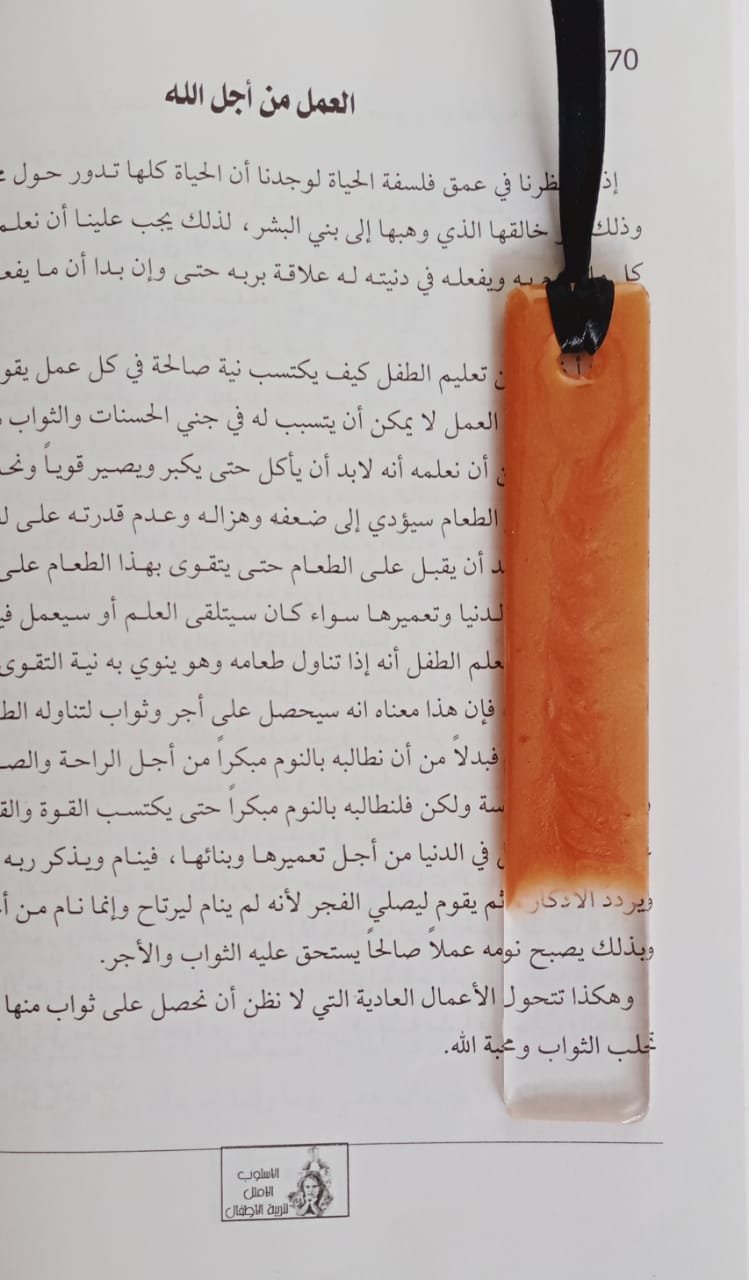 70
العمل من أجل الله
نظرنا في عمق فلسفة الحياة لوجدنا أن الحياة كلها تدور حول
وذلك خالقها الذي وهبها إلى بني البشر، لذلك يجب علينا أن نعلم
كل به ويفعله في دنيته له علاقة بربه حتى وإن بدا أن ما
تعليم الطفل كيف يكتسب نية صالحة في كل عمل
العمل لا يمكن أن يتسبب له في جني الحسنات والثواب
أن نعلمه أنه لابد أن يأكل حتى يكبر ويصير قوياً
الطعام سيؤدي إلى ضعفه وهزاله وعدم قدرته على
أن يقبل على الطعام حتى يتقوى بهذا الطعام على
الدنيا وتعميرها سواء كان سيتلقى العلم أو سيعمل
الطفل أنه إذا تناول طعامه وهو ينوي به نية التقوى
فإن هذا معناه انه سيحصل على أجر وثواب لتناوله
فبدلاً من أن نطالبه بالنوم مبكراً من أجل الراحة
ولكن فلنطالبه بالنوم مبكراً حتى يكتسب القوة
في الدنيا من أجل تعميرها وبنائها، فينام ويذكر ربه
ويردد الأذكار، ثم يقوم ليصلي الفجر لأنه لم ينام ليرتاح وإنما نام من
وبذلك يصبح نومه عملاً صالحاً يستحق عليه الثواب والأجر.
وهكذا تتحول الأعمال العادية التي لا نظن أن نحصل على ثواب منها
تجلب الثواب ومحبة الله.
الاسلوب
الامثل
لتربية الاطفال